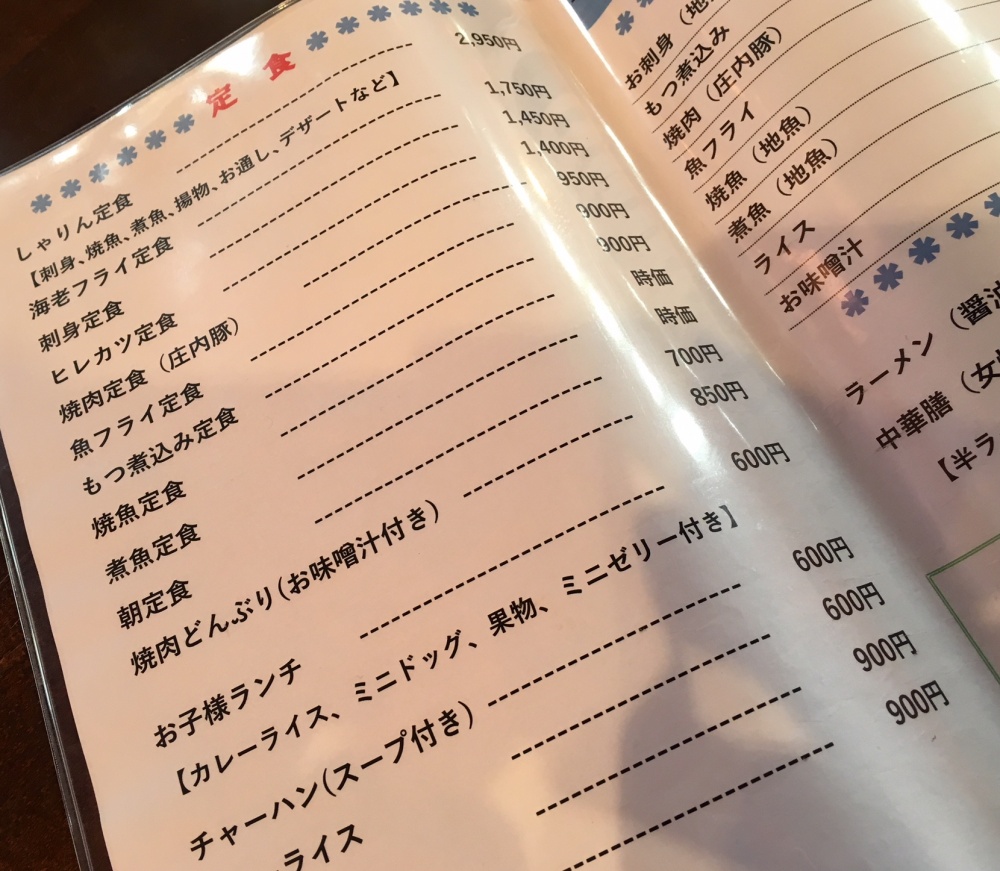 定食
しゃりん定食 2,950円
【刺身、焼魚、煮魚、揚物、お通し、デザートなど】
海老フライ定食 1,750円
刺身定食 1,450円
ヒレカツ定食 1,400円
焼肉定食（庄内豚） 950円
魚フライ定食 900円
もつ煮込み定食 900円
焼魚定食 時価
煮魚定食 時価
朝定食 700円
焼肉どんぶり(お味噌汁付き) 850円
お子様ランチ 600円
【カレーライス、ミニドッグ、果物、ミニゼリー付き】
チャーハン(スープ付き) 600円
ライス 600円
900円
900円
お刺身（地
もつ煮込み
焼肉（庄内豚）
魚フライ
焼魚（地魚）
煮魚（地魚）
ライス
お味噌汁
ラーメン（醤油
中華膳（女
【半ラ